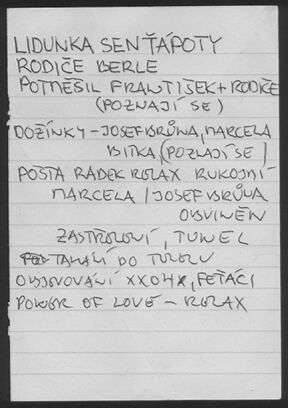 LIDUNKA SENŤÁPOTY
RODIČE BERLE
POTMĚŠIL FRANTIŠEK + RODIČE
(POZNAJÍ SE)
DOŽÍNKY - JOSEF BRŮNA, MARCELA
BITKA, (POZNAJÍ SE)
POŠTA RADEK RELAX RUKOJMÍ
MARCELA / JOSEF BRŮNA
OBVINĚN
ZASTŘELENÍ, TUNEL
TAHÁNÍ DO TUNELU
OBJEVOVÁNÍ XXOHX, FEŤÁCI
POWER OF LOVE - RELAX